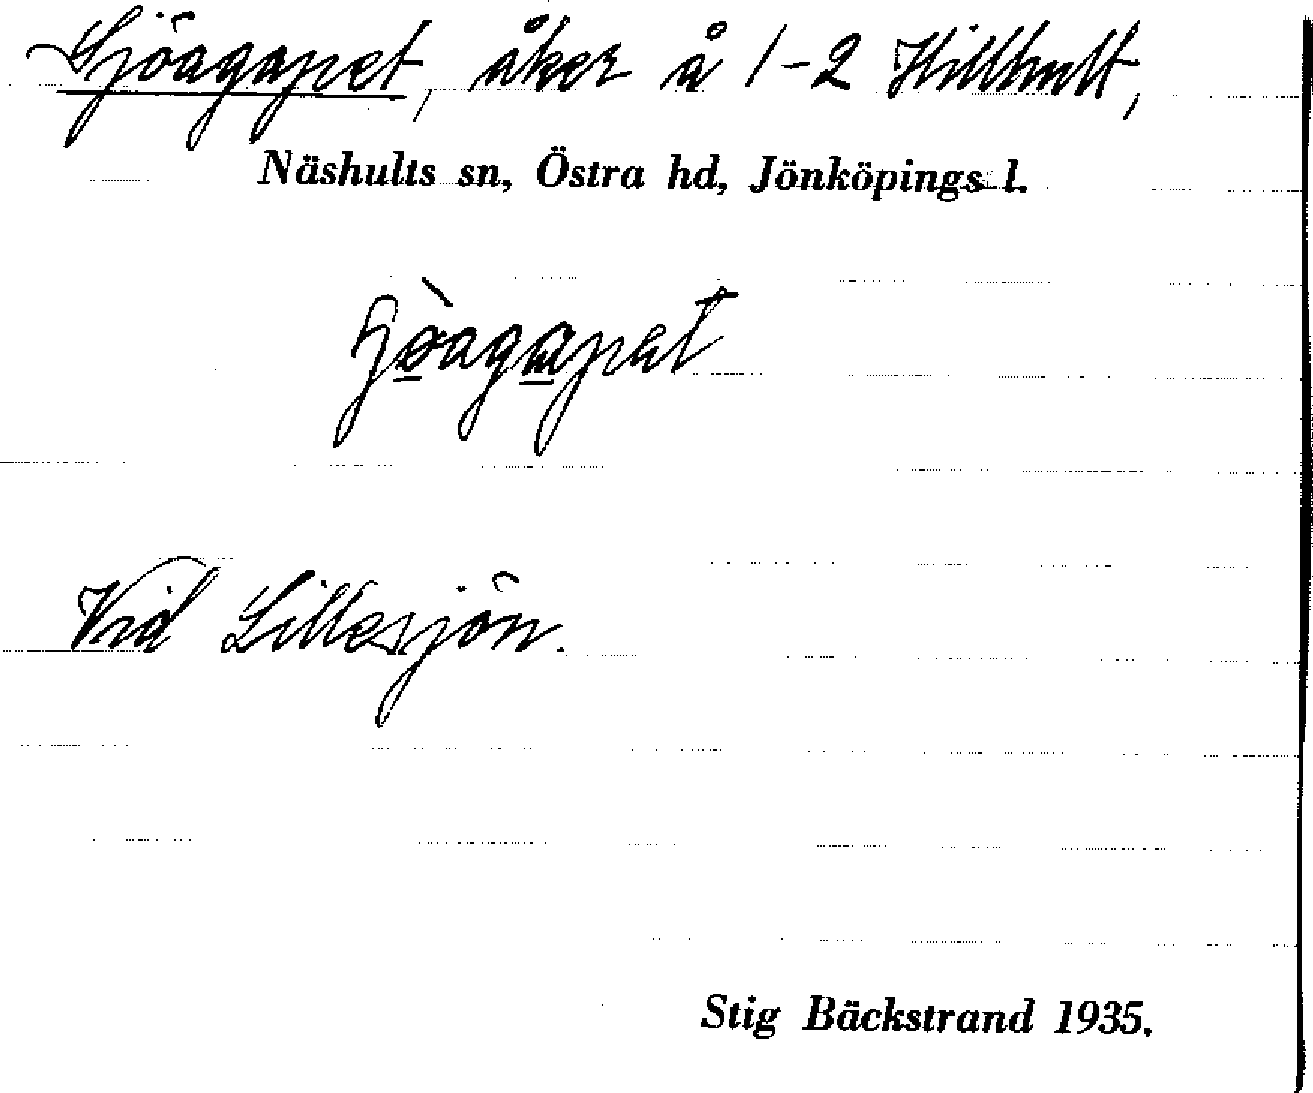 Sjöagapet, åker å 1-2 Hillhult,
Näshults sn, Östra hd, Jönköpings l.
Vid Lillesjön.
Stig Bäckstrand 1935.